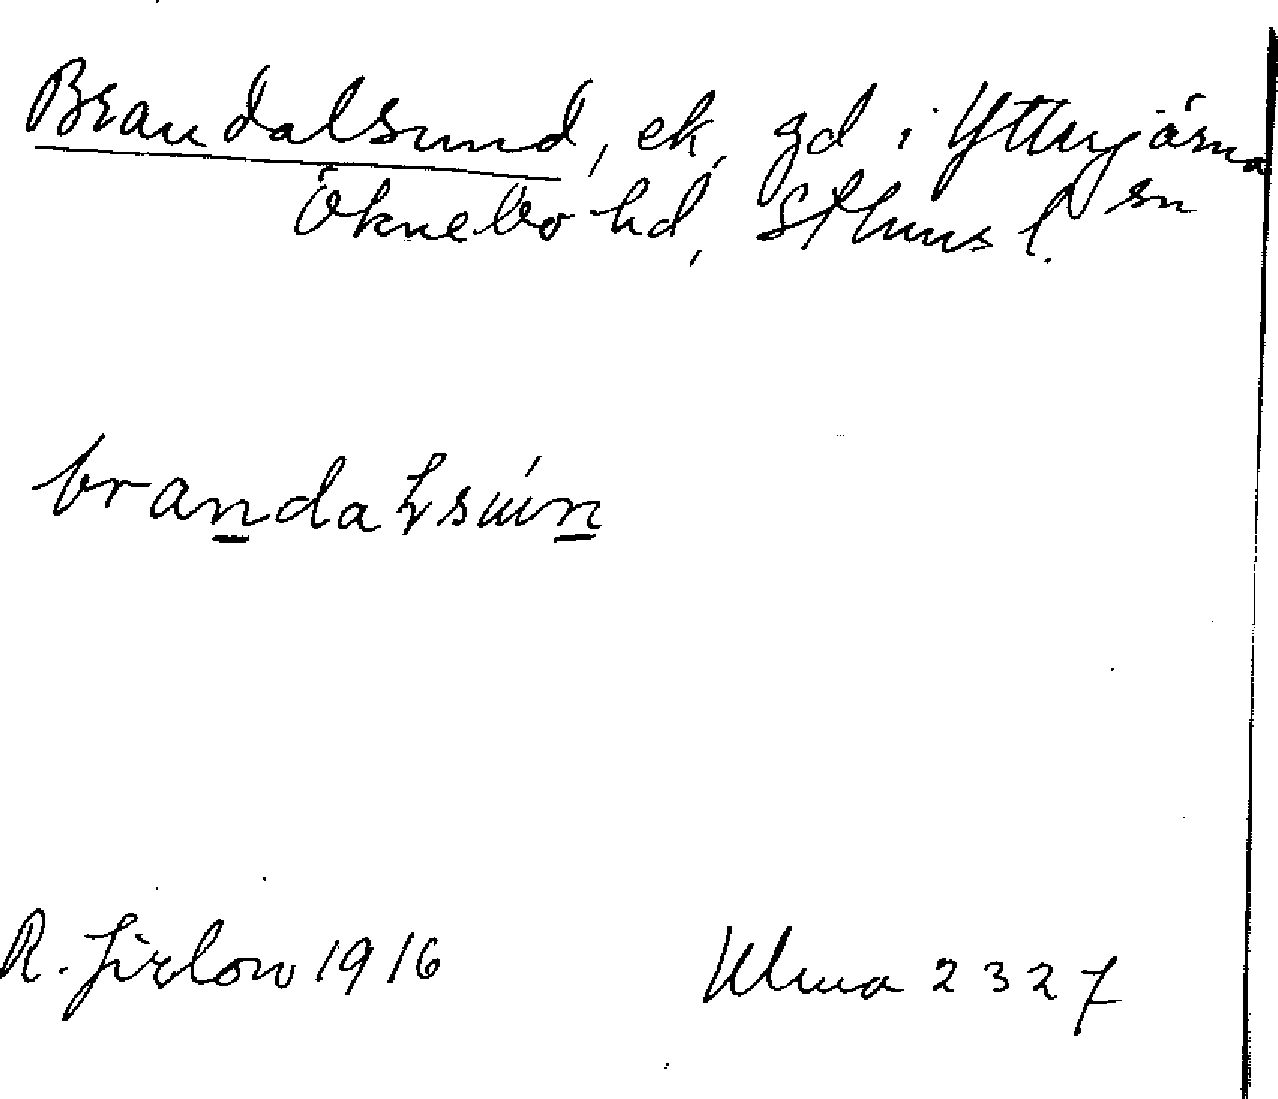 Brandalsund, ek, gd i Ytterjärna
Öknebo hd, Sthms l. sn
brandaꞭsún
R. Jirlow 1916 Ulma 2327